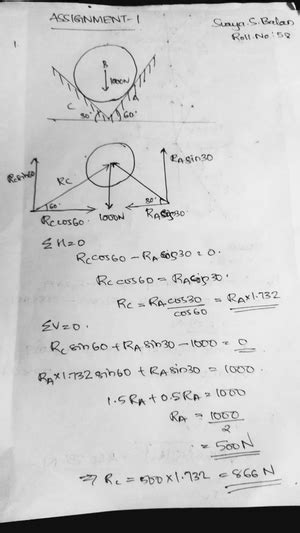 ASSIGNMENT-1
Suraya S. Balan
Roll.No:58
1
B
1000N
C
A
30°
60°
RC sin60
RC
RA sin30
60°
30°
RC cos60
1000N
RA cos30
ΣH=0
RC cos60 - RA cos30 = 0.
RC cos60 = RA cos30.
RC = RA. cos30 / cos60 = RA×1.732
ΣV=0.
RC sin60 + RA sin30 - 1000 = 0
RA×1.732 sin60 + RA sin30 = 1000.
1.5RA + 0.5RA = 1000
RA = 1000
2
= 500N
⇒ RC = 500×1.732 = 866N